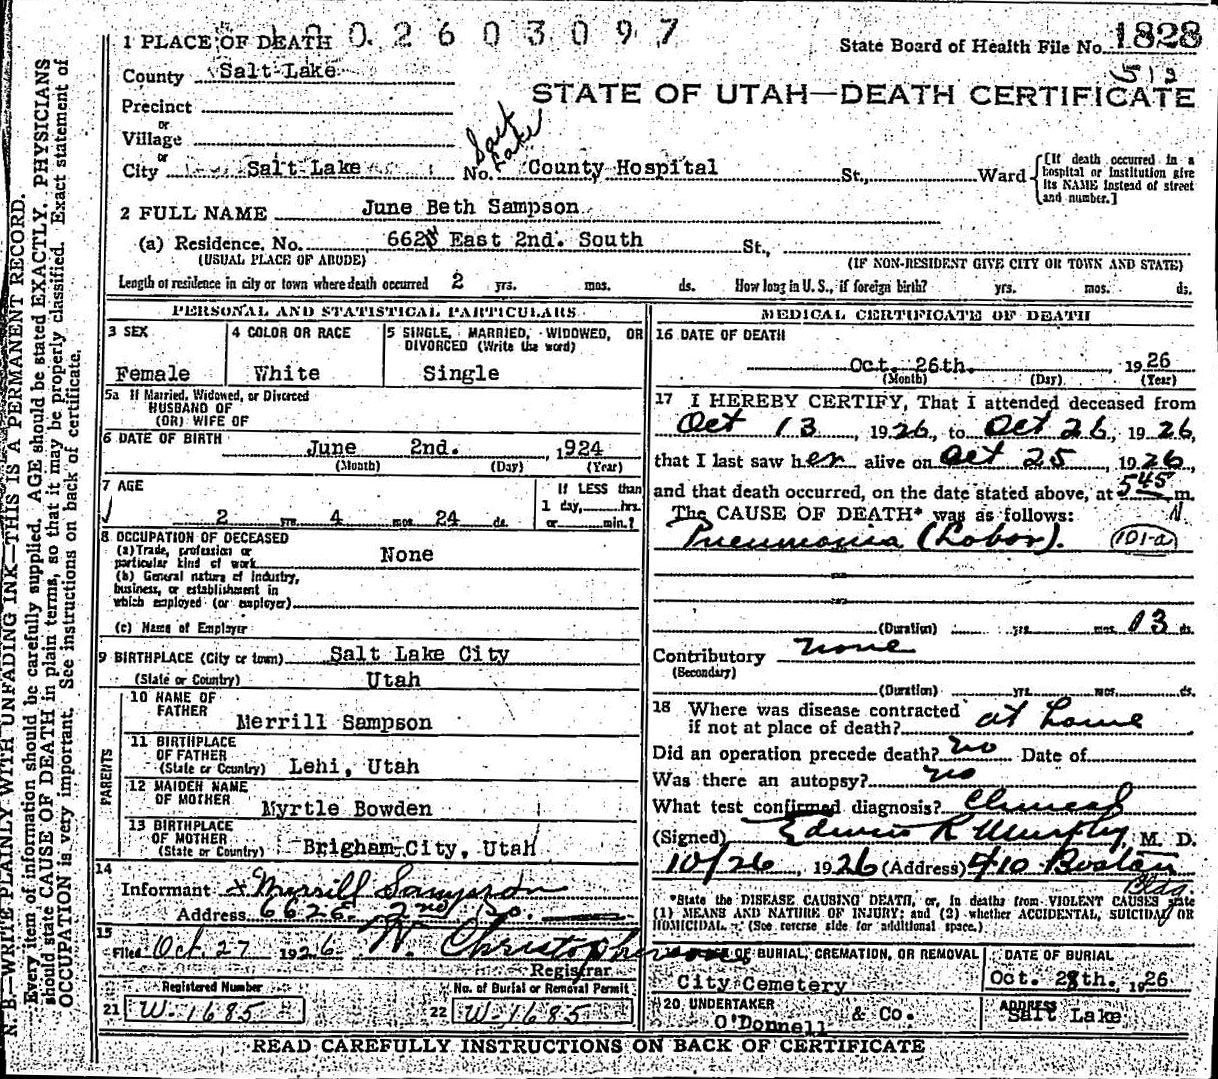 1 PLACE OF DEATH
02603097
State Board of Health File No. 1828
512
County Salt Lake
STATE OF UTAH—DEATH CERTIFICATE
Precinct
or
Village
or
City Salt Lake No. Salt Lake County Hospital St., Ward
[If death occurred in a hospital or institution give its NAME instead of street and number.]
2 FULL NAME June Beth Sampson
(a) Residence. No. 662 East 2nd. South St.,
(USUAL PLACE OF ABODE) (IF NON-RESIDENT GIVE CITY OR TOWN AND STATE)
Length of residence in city or town where death occurred 2 yrs. mos. ds. How long in U. S., if foreign birth? yrs. mos. ds.
PERSONAL AND STATISTICAL PARTICULARS
3 SEX
Female
4 COLOR OR RACE
White
5 SINGLE, MARRIED, WIDOWED, OR
DIVORCED (Write the word)
Single
5a If Married, Widowed, or Divorced
HUSBAND OF
(OR) WIFE OF
6 DATE OF BIRTH
June 2nd. , 1924
(Month) (Day) (Year)
7 AGE
2 yrs. 4 mos. 24 ds.
If LESS than
1 day, hrs.
or min.?
8 OCCUPATION OF DECEASED
(a) Trade, profession or
particular kind of work None
(b) General nature of industry,
business, or establishment in
which employed (or employer)
(c) Name of Employer
9 BIRTHPLACE (City or town) Salt Lake City
(State or Country) Utah
PARENTS
10 NAME OF
FATHER
Merrill Sampson
11 BIRTHPLACE
OF FATHER
(State or Country) Lehi, Utah
12 MAIDEN NAME
OF MOTHER
Myrtle Bowden
13 BIRTHPLACE
OF MOTHER
(State or Country) Brigham City, Utah
14
Informant Merrill Sampson
Address 662 E. 2nd So.
15
Filed Oct. 27 1926 W. Christopherson
Registrar
Registered Number
21 W-1685
No. of Burial or Removal Permit
22 W-1685
MEDICAL CERTIFICATE OF DEATH
16 DATE OF DEATH
Oct. 26th. , 1926
(Month) (Day) (Year)
17 I HEREBY CERTIFY, That I attended deceased from
Oct 13 , 1926, to Oct 26, 1926,
that I last saw her alive on Oct 25 1926,
and that death occurred, on the date stated above, at 545 m.
The CAUSE OF DEATH* was as follows:
Pneumonia (Lobar). 101-a
(Duration) yrs. mos. 13 ds.
Contributory none
(Secondary)
(Duration) yrs. mos. ds.
18 Where was disease contracted
if not at place of death? at home
Did an operation precede death? no Date of
Was there an autopsy? no
What test confirmed diagnosis? Clinical
(Signed) Edwin R Murphy, M. D.
10/26 , 1926 (Address) 410 Boston
Bldg.
*State the DISEASE CAUSING DEATH, or, in deaths from VIOLENT CAUSES state
(1) MEANS AND NATURE OF INJURY; and (2) whether ACCIDENTAL, SUICIDAL OR
HOMICIDAL. (See reverse side for additional space.)
OF BURIAL, CREMATION, OR REMOVAL
City Cemetery
DATE OF BURIAL
Oct. 28th. , 1926
20 UNDERTAKER
O'Donnell & Co.
ADDRESS
Salt Lake
READ CAREFULLY INSTRUCTIONS ON BACK OF CERTIFICATE
N. B.—WRITE PLAINLY WITH UNFADING INK—THIS IS A PERMANENT RECORD.
Every item of information should be carefully supplied. AGE should be stated EXACTLY. PHYSICIANS
should state CAUSE OF DEATH in plain terms, so that it may be properly classified. Exact statement of
OCCUPATION is very important. See instructions on back of certificate.